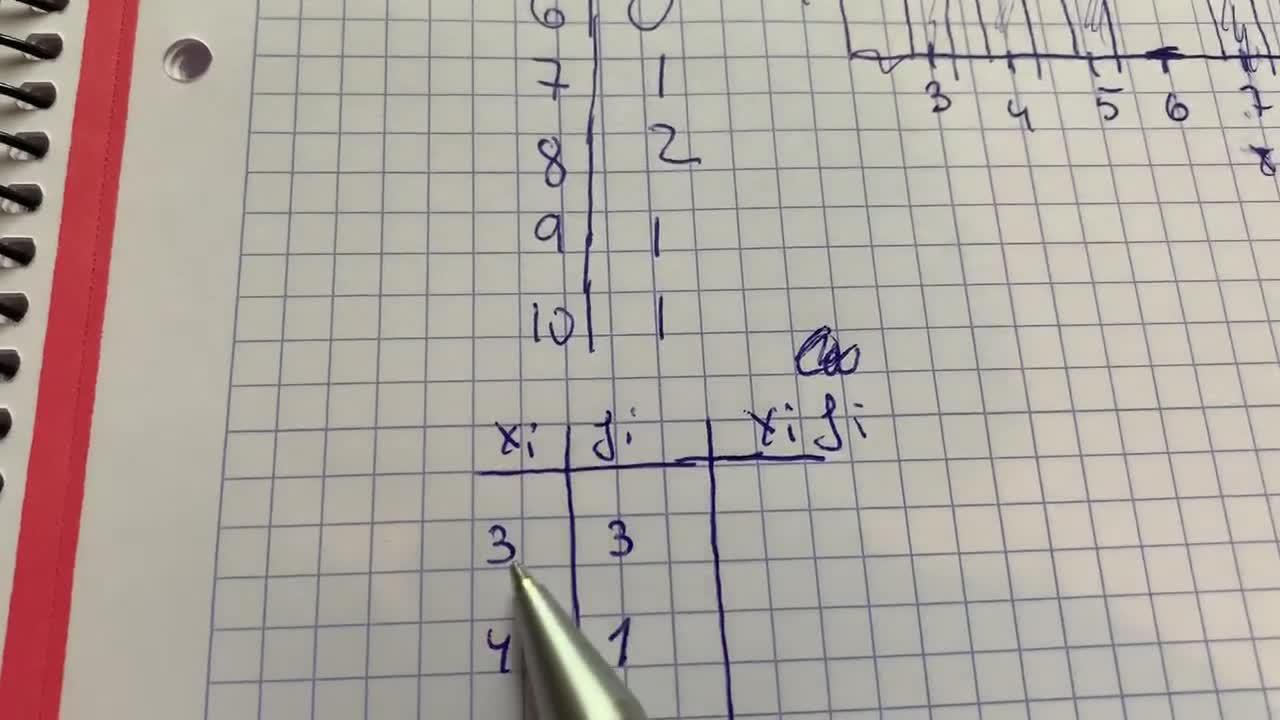 6 0
7 1
8 2
9 1
10 1
3 4 5 6 7
8
xi fi xi fi
3 3
4 1